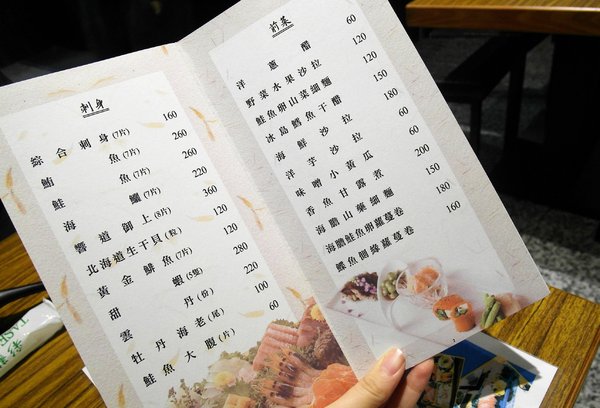 刺身
綜合刺身(7片) 160
鮪魚(7片) 260
鮭魚(7片) 260
海鱺(7片) 220
響道御上(8片) 360
北海道生干貝(粒) 120
黃金鯡魚(7片) 120
甜蝦(5隻) 280
雲丹(份) 220
牡丹海老(尾) 100
鮭魚大腹(片) 60
前菜
洋蔥醋 60
野菜水果沙拉 120
鮭魚卵山菜細麵 120
冰島鱈魚干醋 150
海鮮沙拉 180
洋芋沙拉 60
味噌小黃瓜 60
香魚甘露煮 200
海膽山藥細麵 150
海膽鮭魚卵蘿蔓卷 180
鰹魚開條蘿蔓卷 160